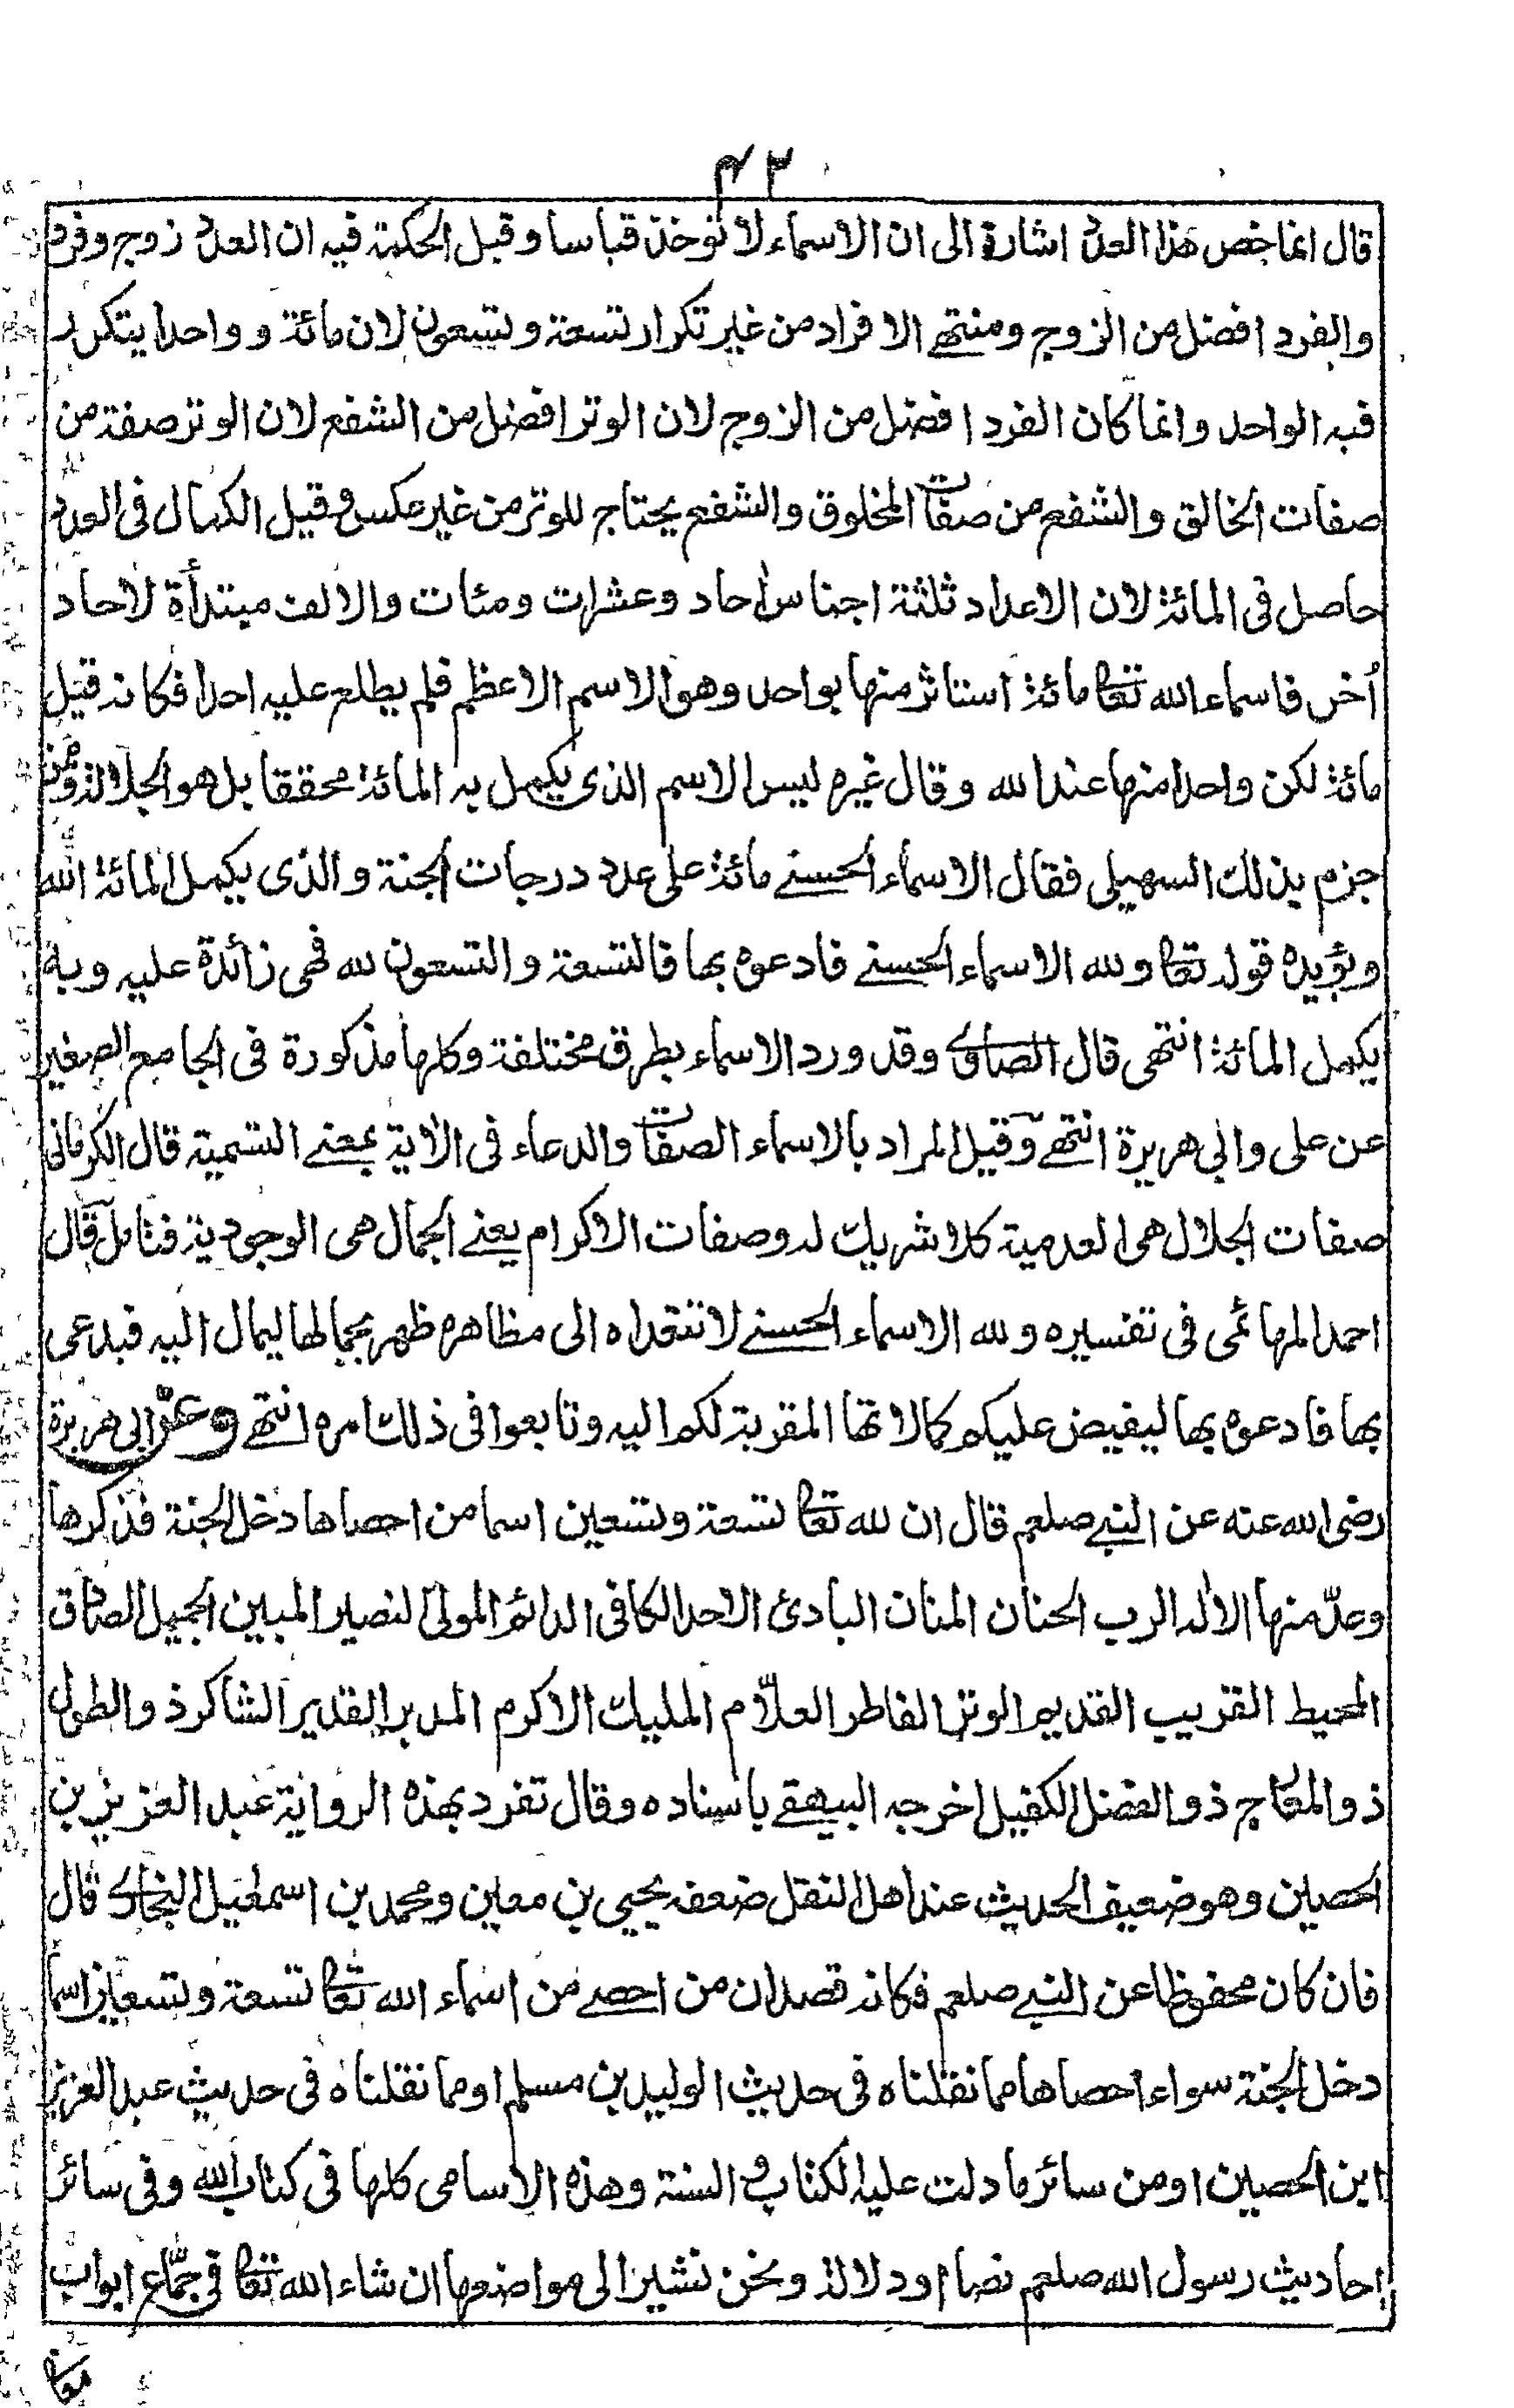 ٤٣
قال انما خص هذا العدد اشارة الى ان الاسماء لا توخذ قياسا وقيل الحكمة فيه ان العدد زوج وفرد
والفرد افضل من الزوج ومنتهى الافراد من غير تكرار تسعة وتسعون لان مائة و واحدا يتكرر
فيه الواحد وانما كان الفرد افضل من الزوج لان الوتر افضل من الشفع لان الوتر صفة من
صفات الخالق والشفع من صفات المخلوق والشفع يحتاج للوتر من غير عكس وقيل الكمال فى العدد
حاصل فى المائة لان الاعداد ثلثة اجناس احاد وعشرات ومئات والالف مبتدأة لاحاد
أخر فاسماء الله تعالى مائة استاثر منها بواحد وهو الاسم الاعظم فلم يطلع عليه احدا فكانه قيل
مائة لكن واحدا منها عند الله وقال غيره ليس الاسم الذى يكمل به المائة محققا بل هو الجلالة وممن
جزم بذلك السهيلى فقال الاسماء الحسنى مائة على عدد درجات الجنة والذى يكمل المائة الله
ويؤيده قوله تعالى ولله الاسماء الحسنى فادعوه بها فالتسعة والتسعون لله فهى زائدة عليه وبه
يكمل المائة انتهى قال الصاوى وقد ورد الاسماء بطرق مختلفة وكلها مذكورة فى الجامع الصغير
عن على وابى هريرة انتهى وقيل المراد بالاسماء الصفات والدعاء فى الاية بمعنى التسمية قال الكرمانى
صفات الجلال هى العدمية كلا شريك له وصفات الاكرام يعنى الجمال هى الوجودية فتامل قال
احمد المهائمى فى تفسيره ولله الاسماء الحسنى لا تتعداه الى مظاهره ظهر بجمالها ليمال اليه فيدعى
بها فادعوه بها ليفيض عليكم كمالاتها المقربة لكم اليه وتابعوا فى ذلك امره انتهى وعن ابى هريرة
رضى الله عنه عن النبى صلعم قال ان لله تعالى تسعة وتسعين اسما من احصاها دخل الجنة فذكرها
وعدّ منها الاله الرب الحنان المنان البادئ الاحد الكافى الدائم المولى النصير المبين الجميل الصادق
المحيط القريب القديم الوتر الفاطر العلّام المليك الاكرم المدبر القدير الشاكر ذو الطول
ذو المعارج ذو الفضل الكفيل اخرجه البيهقى باسناده وقال تفرد بهذه الرواية عبد العزيز بن
الحصين وهو ضعيف الحديث عند اهل النقل ضعفه يحيى بن معين ومحمد بن اسمعيل البخارى قال
فان كان محفوظا عن النبى صلعم فكانه قصد ان من احصى من اسماء الله تعالى تسعة وتسعين اسما
دخل الجنة سواء احصاها مما نقلناه فى حديث الوليد بن مسلم او مما نقلناه فى حديث عبد العزيز
ابن الحصين او من سائر ما دلت عليه الكتاب والسنة وهذه الاسامى كلها فى كتاب الله وفى سائر
احاديث رسول الله صلعم نصا او دلالة ونحن نشير الى مواضعها ان شاء الله تعالى فى جمّاع ابواب